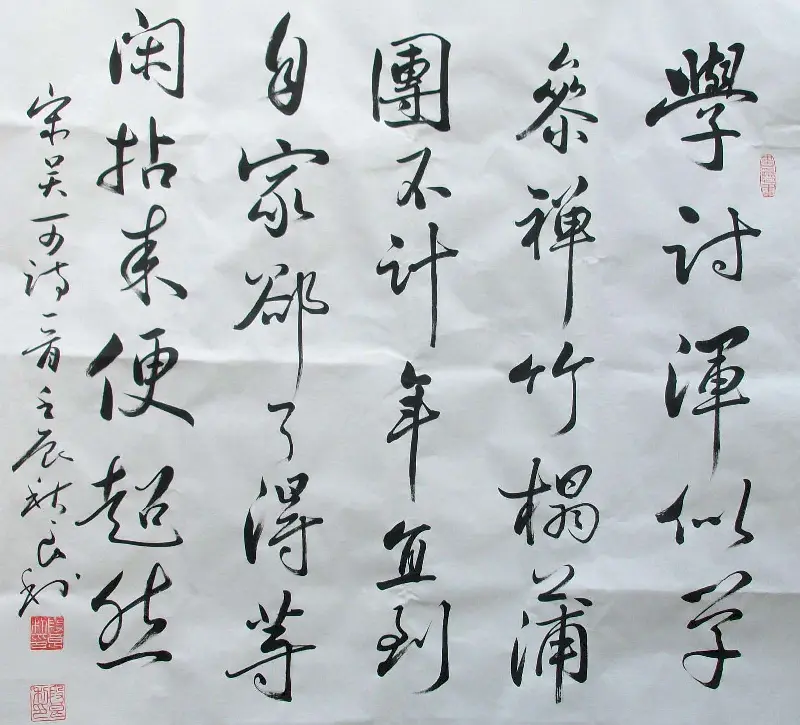 學詩渾似学
參禪竹榻蒲
團不計年直到
自家郤了得等
閑拈来便超然
宋吴可诗一首壬辰秋良利